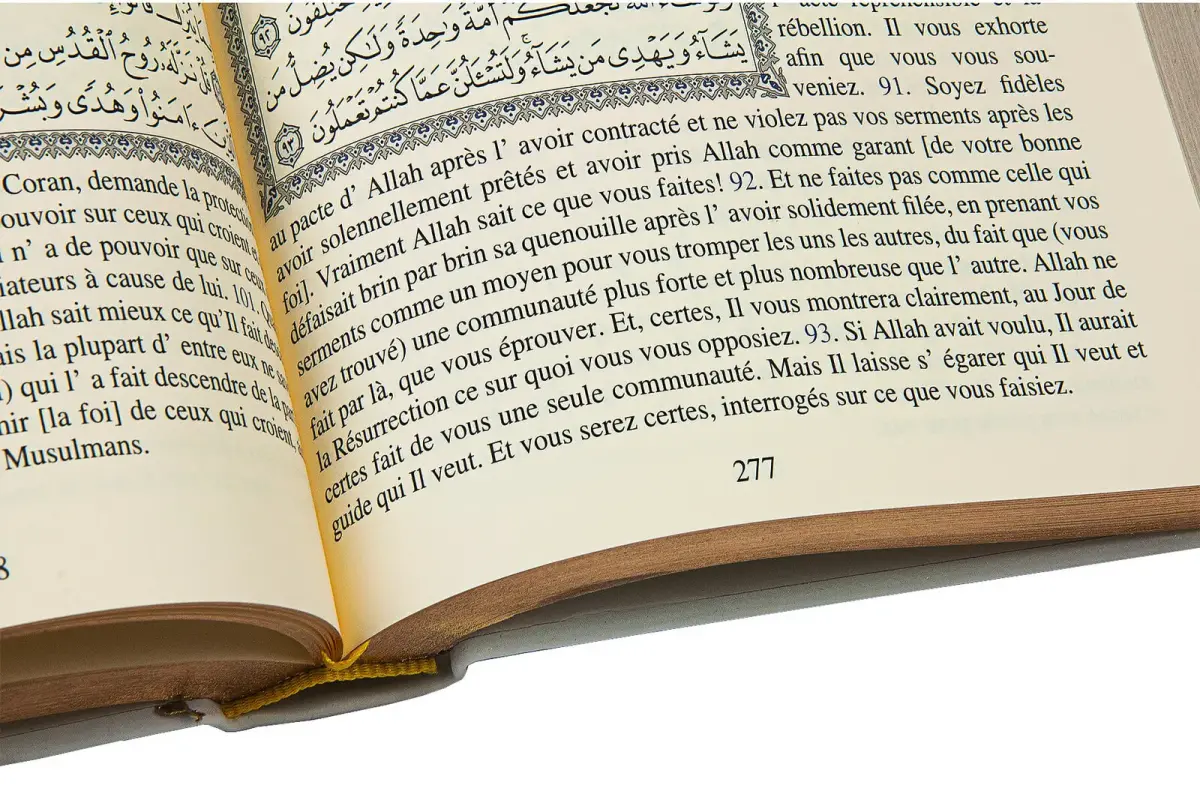 وَلَوْ شَآءَ ٱللَّهُ لَجَعَلَكُمْ أُمَّةً وَٰحِدَةً وَلَٰكِن يُضِلُّ مَن
يَشَآءُ وَيَهْدِى مَن يَشَآءُ وَلَتُسْـَٔلُنَّ عَمَّا كُنتُمْ تَعْمَلُونَ ٩٣
l' acte répréhensible et la
rébellion. Il vous exhorte
afin que vous vous sou-
veniez. 91. Soyez fidèles
au pacte d' Allah après l' avoir contracté et ne violez pas vos serments après les
avoir solennellement prêtés et avoir pris Allah comme garant [de votre bonne
foi]. Vraiment Allah sait ce que vous faites! 92. Et ne faites pas comme celle qui
défaisait brin par brin sa quenouille après l' avoir solidement filée, en prenant vos
serments comme un moyen pour vous tromper les uns les autres, du fait que (vous
avez trouvé) une communauté plus forte et plus nombreuse que l' autre. Allah ne
fait par là, que vous éprouver. Et, certes, Il vous montrera clairement, au Jour de
la Résurrection ce sur quoi vous vous opposiez. 93. Si Allah avait voulu, Il aurait
certes fait de vous une seule communauté. Mais Il laisse s' égarer qui Il veut et
guide qui Il veut. Et vous serez certes, interrogés sur ce que vous faisiez.
277
نَزَّلَهُۥ رُوحُ ٱلْقُدُسِ مِن
ءَامَنُوا۟ وَهُدًى وَبُشْرَ
Coran, demande la
ouvoir sur ceux qui croient
n' a de pouvoir que sur ceux
iateurs à cause de lui. 101.
llah sait mieux ce qu'Il fait
is la plupart d' entre eux ne
) qui l' a fait descendre de la
nir [la foi] de ceux qui croient,
Musulmans.
8